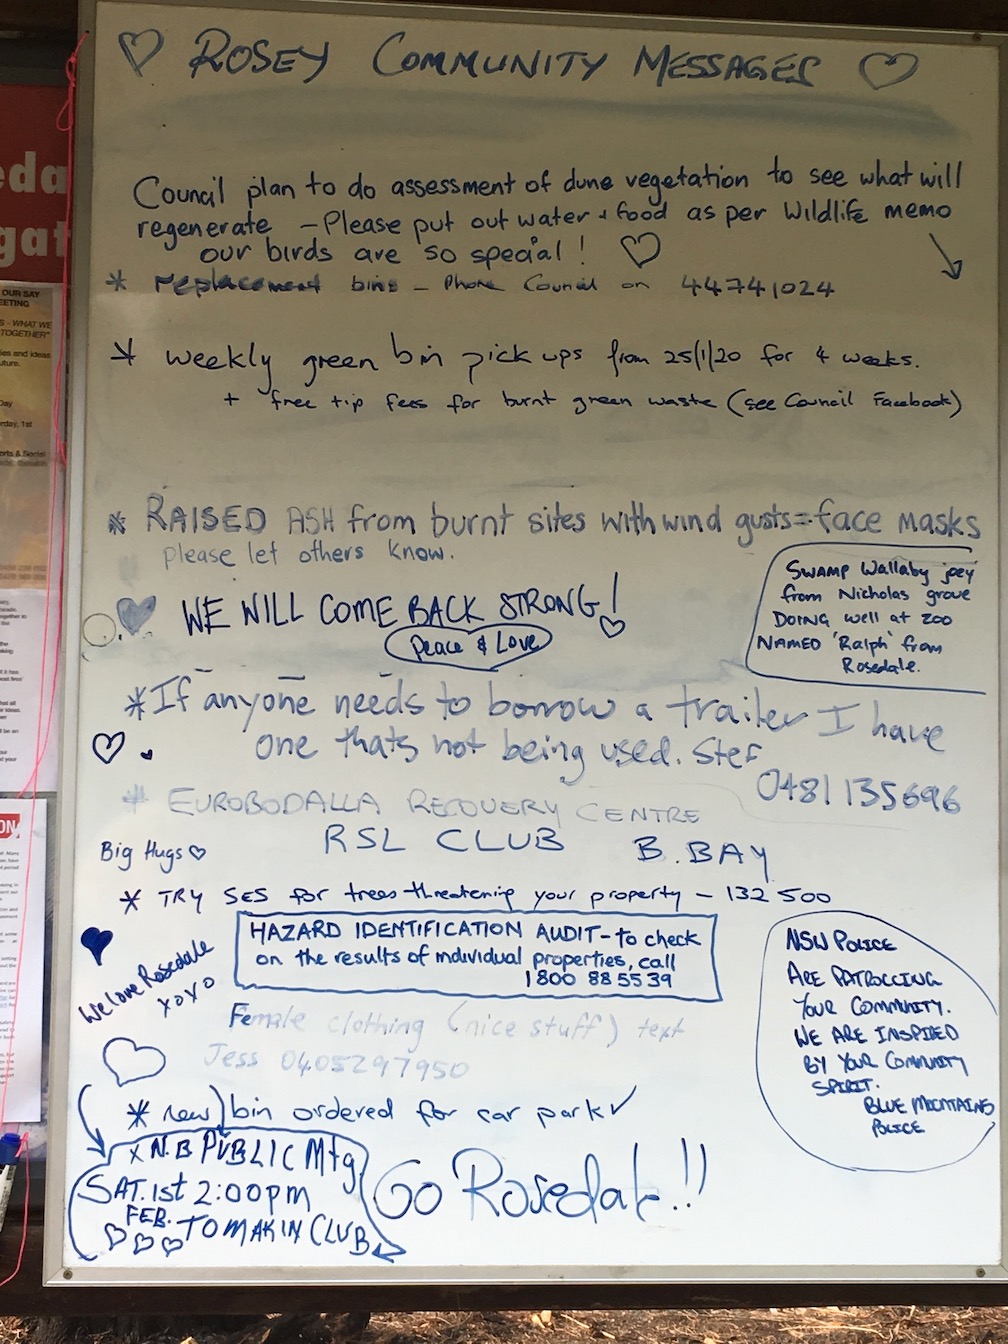 ROSEY COMMUNITY MESSAGES
Council plan to do assessment of dune vegetation to see what will
regenerate - Please put out water + food as per Wildlife memo
our birds are so special!
* replacement bins - Phone Council on 44741024
* weekly green bin pick ups from 25/1/20 for 4 weeks.
+ free tip fees for burnt green waste (see Council Facebook)
* RAISED ASH from burnt sites with wind gusts = face masks
please let others know.
WE WILL COME BACK STRONG!
Peace & Love
SWAMP Wallaby joey
from Nicholas grove
DOING well at zoo
NAMED 'Ralph' from
Rosedale.
* If anyone needs to borrow a trailer I have
one thats not being used. Stef
0481135696
* EUROBODALLA RECOVERY CENTRE
RSL CLUB B.BAY
Big Hugs
* TRY SES for trees threatening your property - 132 500
HAZARD IDENTIFICATION AUDIT - to check
on the results of individual properties, call
1800 885539
We love Rosedale
xoxo
NSW POLICE
ARE PATROLLING
YOUR COMMUNITY.
WE ARE INSPIRED
BY YOUR COMMUNITY
SPIRIT.
BLUE MOUNTAINS
POLICE
Female clothing (nice stuff) text
Jess 0405297950
* new bin ordered for car park ✓
x N.B PUBLIC Mtg
SAT. 1st 2:00pm
FEB. TOMAKIN CLUB
Go Rosedale!!
eda
gat
OUR SAY
EETING
S - WHAT WE
TOGETHER"
ies and ideas
uture.
Day
rday, 1st
orts & Social
ON